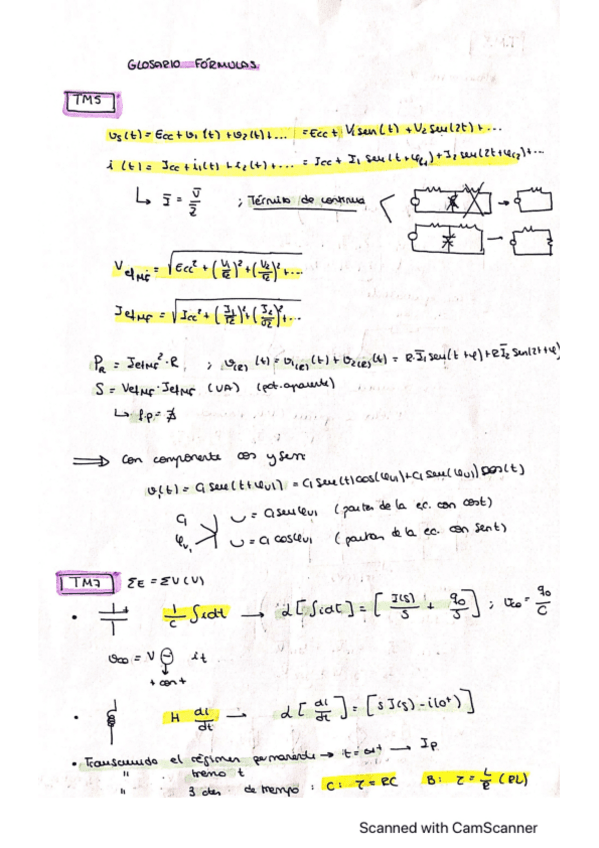 GLOSARIO FÓRMULAS
TM5
v_s(t) = E_cc + v_1(t) + v_2(t) + ... = E_cc + V_1 sen(t) + V_2 sen(2t) + ...
i(t) = I_cc + i_1(t) + i_2(t) + ... = I_cc + I_1 sen(t+φ_1) + I_2 sen(2t+φ_2) + ...
↳ I = V/Z ; Término de continua
V_ef = √(E_cc² + (V_1/√2)² + (V_2/√2)² + ...
I_ef = √(I_cc² + (I_1/√2)² + (I_2/√2)² + ...
P_R = I_ef² · R ; v_(R)(t) = v_1(R)(t) + v_2(R)(t) = R·I_1 sen(t+φ) + R I_2 sen(2t+φ)
S = V_ef · I_ef (VA) (pot. aparente)
↳ f.p. =
⟹ Con componente cos y sen:
v_1(t) = C_1 sen(t+φ_v1) = C_1 sen(t) cos(φ_v1) + C_1 sen(φ_v1) cos(t)
C_1 ⌣ = C_1 sen φ_v1 (parten de la ec. con cos t)
φ_v1 ⌣ = C_1 cos φ_v1 (parten de la ec. con sen t)
TM7 ΣE = ΣV (V)
• 1/C ∫idt → L[∫idt] = [I(s)/s + q_0/s] ; = q_0/C
= V
+ con +
• H di/dt → L[di/dt] = [s I(s) - i(0+)]
• Transcurrido el régimen permanente → → I_p
" t
" 3 de tiempo : C: τ = RC B: τ = L/R (RL)
Scanned with CamScanner